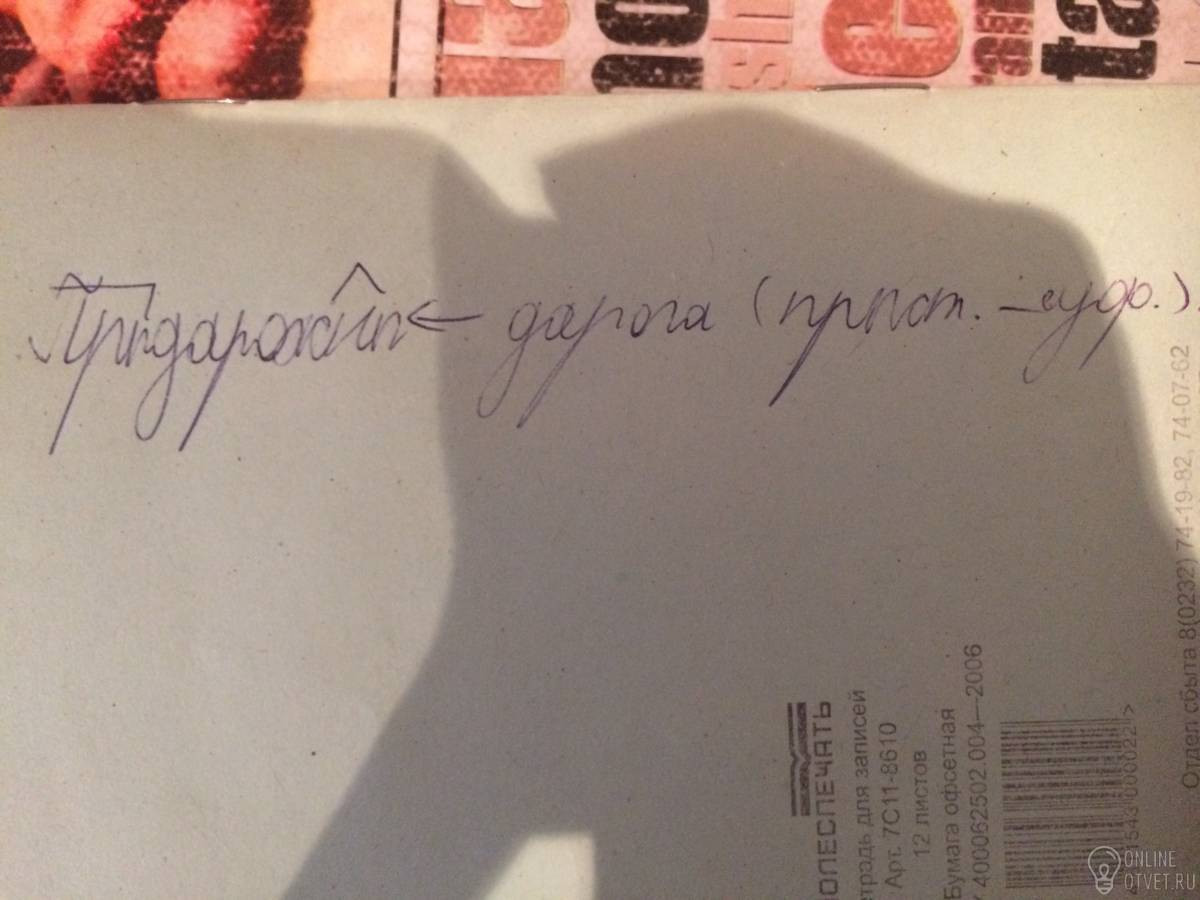 Придарожны ← дарога (прыст. – суф.)
ПОЛЕСПЕЧАТЬ
етрадь для записей
Арт. 7С11-8610
12 листов
Бумага офсетная
400062502.004—2006
1543 000022 >
Отдел сбыта 8(0232) 74-19-82, 74-07-62
ONLINE
OTVET.RU